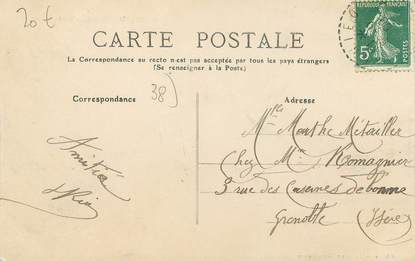 20 €
CARTE POSTALE
La Correspondance au recto n'est pas acceptée par tous les pays étrangers
(Se renseigner à la Poste)
REPUBLIQUE FRANÇAISE
5c
Correspondance
38
Adresse
Amitié
Mlle Marthe Mitailler
Chez Mme Romagnier
3 rue des Casernes de bonne
Grenoble (Isère)